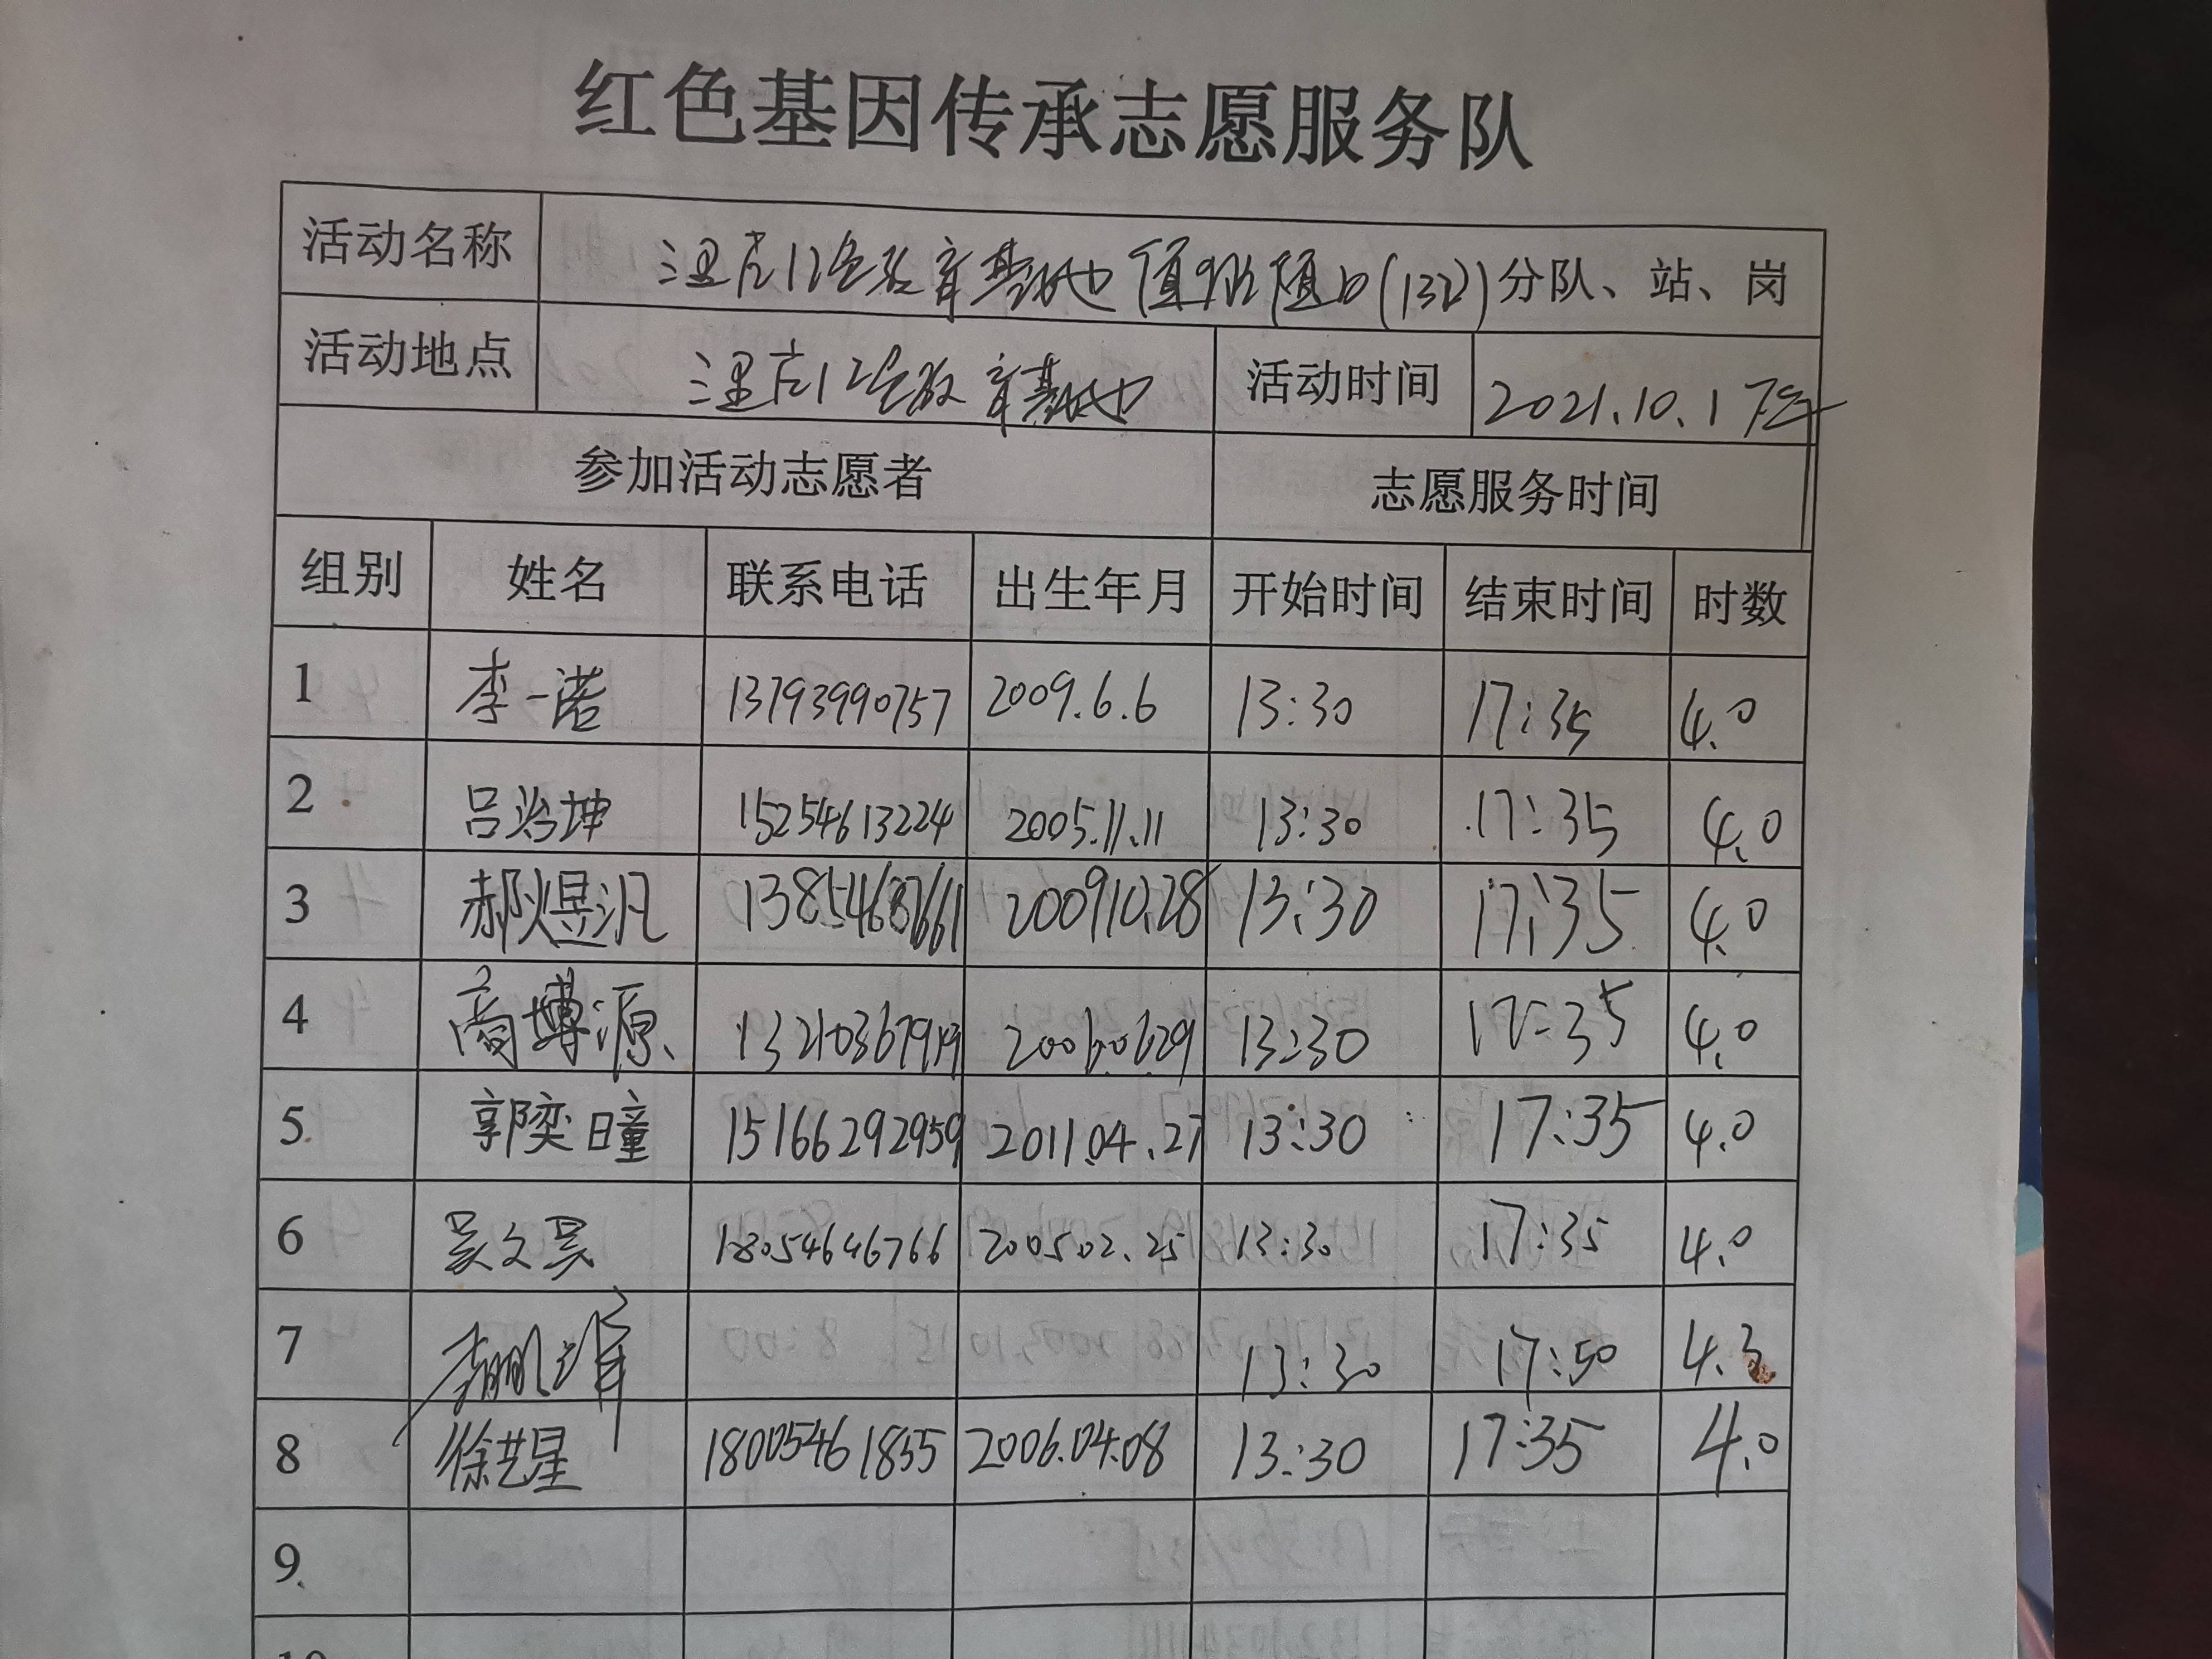 红色基因传承志愿服务队
活动名称 红色教育基地值班值日(132)分队、站、岗
活动地点 红色教育基地 活动时间 2021.10.1下午
参加活动志愿者 志愿服务时间
组别 姓名 联系电话 出生年月 开始时间 结束时间 时数
1 李一诺 13793990757 2009.6.6 13:30 17:35 4.0
2 吕治坤 15254613224 2005.11.11 13:30 17:35 4.0
3 郝煜汎 200910.28 13:30 17:35 4.0
4 商博源 2006.06.29 13:30 17:35 4.0
5 郭奕曈 15166292959 2011.04.27 13:30 17:35 4.0
6 吴文昊 18054646766 2005.02.25 13:30 17:35 4.0
7 13:30 17:50 4.3
8 徐艺星 18005461855 2006.04.08 13:30 17:35 4.0
9
10